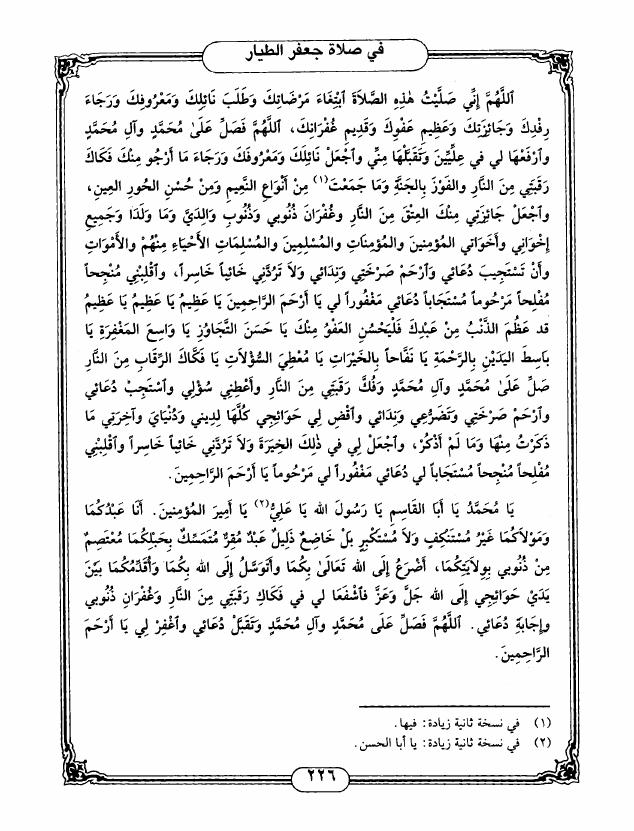 في صلاة جعفر الطيار
اَللّٰهُمَّ إِنِّي صَلَّيْتُ هٰذِهِ الصَّلاَةَ ٱبْتِغَاءَ مَرْضَاتِكَ وَطَلَبَ نَائِلِكَ وَمَعْرُوفِكَ وَرَجَاءَ
رِفْدِكَ وَجَائِزَتِكَ وَعَظِيمِ عَفْوِكَ وَقَدِيمِ غُفْرَانِكَ، اَللّٰهُمَّ فَصَلِّ عَلىٰ مُحَمَّدٍ وَآلِ مُحَمَّدٍ
وَٱرْفَعْهَا لي في عِلِّيِّينَ وَتَقَبَّلْهَا مِنِّي وَٱجْعَلْ نَائِلَكَ وَمَعْرُوفَكَ وَرَجَاءَ مَا أَرْجُو مِنْكَ فَكَاكَ
رَقَبَتِي مِنَ النَّارِ والفَوْزَ بِالجَنَّةِ وَمَا جَمَعَتْ(١) مِنْ أَنْوَاعِ النَّعِيمِ وَمِنْ حُسْنِ الحُورِ العِينِ،
وٱجْعَلْ جَائِزَتي مِنْكَ العِتْقَ مِنَ النَّارِ وغُفْرَانَ ذُنُوبي وَذُنُوبِ وَالِدَيَّ وَمَا وَلَدَا وَجَمِيعِ
إِخْوَاني وَأَخَوَاتي المُؤْمِنينَ والمُؤْمِنَاتِ والمُسْلِمينَ وَالمُسْلِمَاتِ الأَحْيَاءِ مِنْهُمْ والأَمْوَاتِ
وَأَنْ تَسْتَجِيبَ دُعَائي وَٱرْحَمْ صَرْخَتِي وَنِدَائي وَلاَ تَرُدَّنِي خَائِباً خَاسِراً، وَٱقْلِبْنِي مُنْجِحاً
مُفْلِحاً مَرْحُوماً مُسْتَجَاباً دُعَائي مَغْفُوراً لي يَا أَرْحَمَ الرَّاحِمِينَ يَا عَظِيمُ يَا عَظِيمُ يَا عَظِيمُ
قد عَظُمَ الذَّنْبُ مِنْ عَبْدِكَ فَلْيَحْسُنِ العَفْوُ مِنْكَ يَا حَسَنَ التَّجَاوُزِ يَا وَاسِعَ المَغْفِرَةِ يَا
بَاسِطَ اليَدَيْنِ بِالرَّحْمَةِ يَا نَفَّاحاً بِالخَيْرَاتِ يَا مُعْطِيَ السُّؤْلاَتِ يَا فَكَّاكَ الرِّقَابِ مِنَ النَّارِ
صَلِّ عَلىٰ مُحَمَّدٍ وآلِ مُحَمَّدٍ وَفُكَّ رَقَبَتي مِنَ النَّارِ وَأَعْطِني سُؤْلي وٱسْتَجِبْ دُعَائي
وٱرْحَمْ صَرْخَتي وَتَضَرُّعي وَنِدَائي وٱقْضِ لي حَوَائِجي كُلَّهَا لِدِيني وَدُنْيَايَ وَآخِرَتي مَا
ذَكَرْتُ مِنْهَا وَمَا لَمْ أَذْكُرْ، وٱجْعَلْ لي في ذٰلِكَ الخِيَرَةَ وَلاَ تَرُدَّني خَائِباً خَاسِراً وٱقْلِبْنِي
مُفْلِحاً مُنْجِحاً مُسْتَجَاباً لي دُعَائي مَغْفُوراً لي مَرْحُوماً يَا أَرْحَمَ الرَّاحِمِينَ.
يَا مُحَمَّدُ يَا أَبَا القَاسِمِ يَا رَسُولَ الله يَا عَلِيُّ(٢) يَا أَمِيرَ المُؤْمِنينَ. أَنَا عَبْدُكُمَا
وَمَوْلاَكُمَا غَيْرُ مُسْتَنْكِفٍ وَلاَ مُسْتَكْبِرٍ بَلْ خَاضِعٌ ذَلِيلٌ عَبْدٌ مُقِرٌّ مُتَمَسِّكٌ بِحَبْلِكُمَا مُعْتَصِمٌ
مِنْ ذُنُوبي بِوِلاَيَتِكُمَا، أَضْرَعُ إِلَى الله تَعَالَىٰ بِكُمَا وأَتَوَسَّلُ إِلَى الله بِكُمَا وَأُقَدِّمُكُمَا بَيْنَ
يَدَيْ حَوَائِجي إِلَى الله جَلَّ وَعَزَّ فَٱشْفَعَا لي في فَكَاكِ رَقَبَتِي مِنَ النَّارِ وَغُفْرَانِ ذُنُوبي
وإِجَابَةِ دُعَائي. اَللّٰهُمَّ فَصَلِّ عَلَى مُحَمَّدٍ وآلِ مُحَمَّدٍ وَتَقَبَّلْ دُعَائي وٱغْفِرْ لي يَا أَرْحَمَ
الرَّاحِمِينَ.
(١) في نسخة ثانية زيادة: فيها.
(٢) في نسخة ثانية زيادة: يا أبا الحسن.
٢٢٦